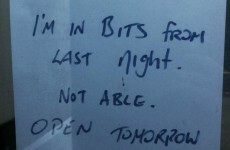 I'M IN BITS FROM
LAST NIGHT.
NOT ABLE.
OPEN TOMORROW